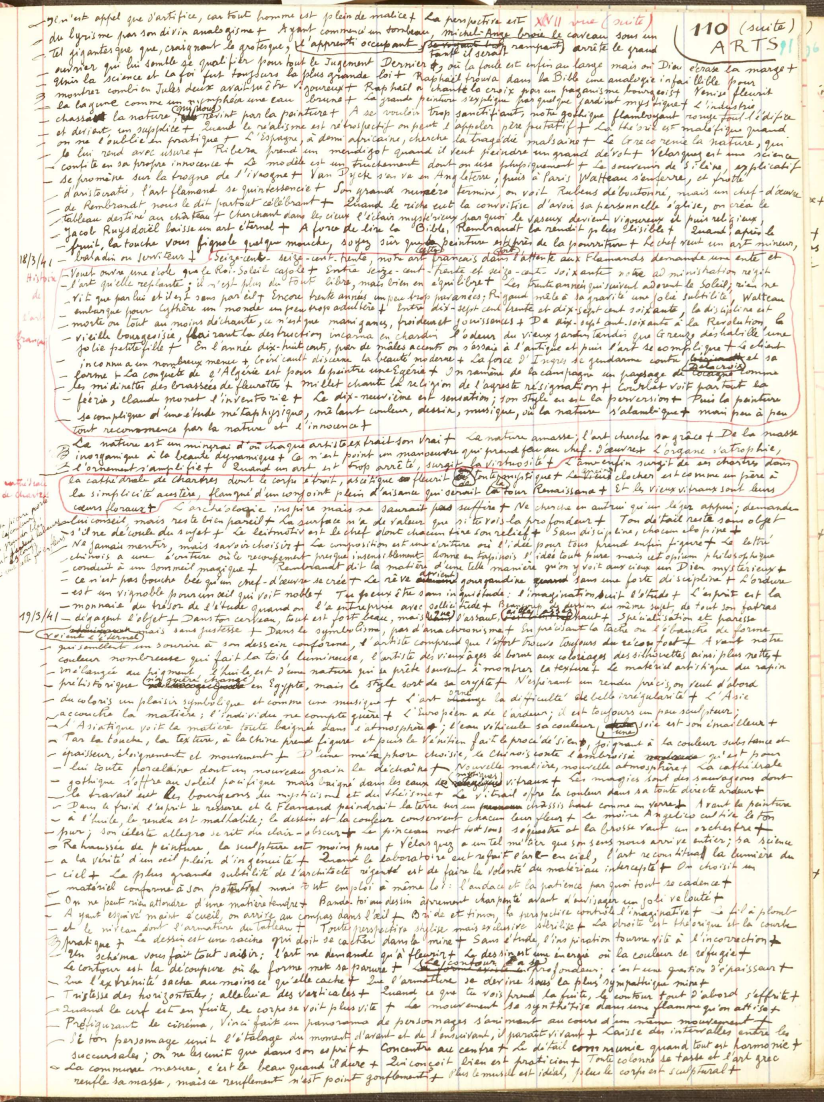 110 (suite)
ARTS
XVII vue (suite)
Il n'est appel que d'artifice, car tout homme est plein de malice + La perspective est
du lyrisme par son divin analogisme + Ayant commencé un tombeau, Michel-Ange broie le caveau sous un
Tel gigantesque que, craignant le grotesque, l'apprenti occupant arrête le grand
ouvrier qui lui semble se qualifier pour tout le Jugement Dernier +, où la foule est enfin au large mais où Dieu écrase la marge +
la science et la foi fut toujours la plus grande loi + Raphaël trouva dans la Bible une analogie infaillible pour
montrer combien Jules deux avait su être vigoureux + Raphaël a chanté la croix par un paganisme bourgeois + Venise fleurit
la lagune comme un nymphéa une eau brune + La grande peinture s'explique par quelque jardin mystique + L'industrie
chassant la nature, revint par la peinture + A se vouloir trop sanctifiant, notre gothique flamboyant rouge tout l'édifice
et devient un supplice + Quand le réalisme est rétrospectif on peut l'appeler + La théorie est maléfique quand
on ne l'oublie en pratique + L'Espagne, à demi africaine, cherche la tragédie malsaine + Le Greco renie la nature, qui
le lui rend avec usure + Ribera prend un mendigot quand il veut peindre un grand dévot + Velasquez est une science
confite en sa propre innocence + Le modèle est un truchement dont on use physiquement + Le souvenir de Silène, explicatif
se promène sur la trogne de l'ivrogne + Van Dyck s'en va en Angleterre, puis à Paris Watteau s'enferre, et frotté
d'aristocratie, l'art flamand se quintessencie + Son grand numéro terminé, on voit Rubens déboutonné, mais un chef-d'œuvre
de Rembrandt nous le dit partout célébrant + Quand le riche eut la convoitise d'avoir sa personnelle église, on créa le
tableau destiné au château + Cherchant dans les cieux l'éclair mystérieux par quoi le vaseux devient vigoureux et puis religieux,
Jacob Ruysdaël laisse un art éternel + A force de lire la Bible, Rembrandt la rendit plus lisible + Quand, après le
fruit, la touche vous fignole quelque mouche, soyez sûr que la peinture est près de la pourriture + Le chef veut un art mineur,
baladin ou serviteur +
18/3/41
Histoire
de
l'art
français
Seize-cent - seize-cent-trente, notre art français dans l'attente aux Flamands demande une ente et
veut ouvrir une école que le Roi-Soleil cajole + Entre seize-cent-trente et seize-cent-soixante notre administration régit
l'art qu'elle replante ; il n'est plus du tout libre, mais bien en équilibre + Les trente années qui suivent adorent le Soleil ; rien ne
vit que par lui et n'est sans pareil + Encore trente années un peu trop panées ; Rigaud mêle à sa gravité une jolie subtilité, Watteau
embarque pour Cythère un monde un peu trop adultère + Entre dix-sept-cent-trente et dix-sept-cent-soixante, la discipline est
morte ou tout au moins déchante, ce n'est que manigances, froideur et jouissances + De dix-sept-cent-soixante à la Révolution, la
vieille bourgeoisie, flairant la destruction s'incarna en Chardin, l'odeur du vieux jardin, tandis que Greuze déshabille une
jolie petite fille + En l'année dix-huit-cent, par de mâles accents on s'essaye à l'antique et puis l'art se complique + Le client
inconnu a un nombreux menu + Géricault discerne la beauté moderne + La force d'Ingres se gendarme contre Delacroix et sa
larme + La conquête de l'Algérie est pour le peintre une Égérie + On ramène de la campagne un paysage de cocagne comme
les midinettes des brassées de fleurettes + Millet chante la religion de l'agreste résignation + Courbet voit partout la
féérie, Claude Monet l'inventorie + Le dix-neuvième est sensation ; son style en est la perversion + Puis la peinture
se complique d'une étude métaphysique, mêlant couleur, dessin, musique, où la nature s'alambique + mais peu à peu
tout recommence par la nature et l'innocence +
La nature est un minerai d'où chaque artiste extrait son vrai + La nature amasse ; l'art cherche sa grâce + De la masse
inorganique à la beauté dynamique + Ce n'est point un manœuvre qui prend feu au chef-d'œuvre + L'organe s'atrophie,
l'ornement s'amplifie + Quand un art est trop arrêté, surgit la virtuosité + L'âme enfin surgit de ses chartres dans
la cathédrale de Chartres dont le corps étroit, ascétique fleurit + Le vieux clocher est comme un frère à
la simplicité austère, flanqué d'un conjoint plein d'aisance qui serait la tour Renaissance + Et les vieux vitraux sont leurs
cœurs floraux + L'archéologie inspire mais ne saurait pas suffire + Ne cherche en autrui qu'un léger appui ; demande-
lui conseil, mais reste bien pareil + La surface n'a de valeur que si tu vois la profondeur + Ton détail reste sans objet
s'il ne découle du sujet + Le leitmotiv est le chef dont chacun tire son relief + Sans discipline, chacun piétine +
Ne jamais mentir, mais savoir choisir + La composition est une écriture où l'idée pour tous prend enfin figure + Le lettré
chinois a une écriture où le recoupement presque insensiblement donne en tapinois l'idée toute pure mais cet opium philosophique
conduit à un sommeil magique + Rembrandt dit la matière d'une telle manière qu'on y voit aux cieux un Dieu mystérieux +
ce n'est pas bouche bée qu'un chef-d'œuvre se crée + Le rêve devient gourgandine sans une forte discipline + L'ordure
est un vignoble pour un œil qui voit noble + Tu peux être sans inquiétude : l'imagination suit l'étude + L'esprit est la
monnaie du trésor de l'étude quand on l'a entreprise avec sollicitude + du même sujet, de tout son fatras
dégagent l'objet + Dans ton cerveau, tout est fort beau, mais haut + Spécialisation et paresse
19/3/41
mais sans justesse + Dans le symbolisme, pas d'anachronisme + En précisant la tache ou l'ébauche de forme
qui semblent un sourire à son dessein conforme, l'artiste comprend que l'effort trouve toujours du réconfort + Avant notre
couleur nombreuse qui fait la toile lumineuse, l'artiste des vieux âges se borne aux coloriages des silhouettes ainsi plus nettes +
mélangée au pigment, l'huile est d'une nature qui se prête souvent à montrer la texture + Le matériel artistique du rapin
préhistorique n'a guère changé en Égypte, mais le style sort de sa crypte + N'espérant un rendu précis, on veut d'abord
du coloris un plaisir symbolique et comme une musique + L'art orne la difficulté de belle irrégularité + L'Asie
accoucha la matière ; l'individu ne compte guère + L'Européen a de l'ardeur ; il est toujours un peu sculpteur ;
l'Asiatique voit la matière toute baignée dans l'atmosphère + ; l'eau véhicule sa couleur, une soie est son émailleur +
Par la touche, la texture, à la Chine prend figure et puis le Vénitien fait le procédé sien, joignant à la couleur substance et
épaisseur, éloignement et mouvement + D'une métaphore choisie, le Chinois conte l'ambroisie qui est pour
lui toute porcelaine dont un nouveau grain le déchaîne + Nouvelle matière, nouvelle atmosphère + La cathédrale
gothique s'offre au soleil pacifique mais baigné dans les eaux de magiques vitraux + Les magies sont des sauvageons dont
le travail eut les bourgeons du mysticisme et du théisme + Le vitrail offre la couleur dans sa toute directe ardeur +
Dans le froid l'esprit se resserre et le Flamand peindrait la terre sur un châssis haut comme un verre + Avant la peinture
à l'huile, le rendu est malhabile ; le dessin et la couleur conservent chacun leur fleur + Le moine Angelico cultive le ton
pur ; son céleste allegro se rit du clair-obscur + Le pinceau met tout sous séquestre et la brosse vaut un orchestre +
Rehaussée de peinture, la sculpture est moins pure + Vélasquez a un tel métier que son sens nous arrive entier ; sa science
a la vérité d'un œil plein d'ingénuité + Quand le laboratoire eut refait l'arc-en-ciel, l'art reconstitua la lumière du
ciel + La plus grande subtilité de l'architecte vigilant est de faire la volonté du matériau intercepté + On choisit un
matériel conforme à son potentiel mais tout emploi a même loi : l'audace et la patience par quoi tout se cadence +
On ne peut rien attendre d'une matière tendre + Bande-toi au dessin âprement charpenté avant d'envisager un joli velouté +
Ayant esquivé maint écueil, on arrive au compas dans l'œil + Bride et timon, la perspective contrôle l'imaginative + Le fil à plomb
et le niveau sont l'armature du tableau + Toute perspective stylise mais exclusive stérilise + La droite est théorique et la courbe
pratique + Le dessin est une racine qui doit se cacher dans la mine + Sans étude, l'inspiration tourne vite à l'incorrection +
Un schéma vous fait tout saisir ; l'art ne demande qu'à fleurir + Le dessin est une énergie où la couleur se réfugie +
Le contour est la découpure où la forme met sa parure + Le contour a sa profondeur ; c'est une question d'épaisseur +
Que l'extrémité sache au moins ce qu'elle cache + Que l'armature se devine sous la plus sympathique mine +
Tristesse des horizontales ; alleluia des verticales + Quand ce que tu vois prend la fuite, le contour tout d'abord s'effrite +
Quand le cerf est en fuite, le corps se voit plus vite + Le mouvement se synthétise dans une flamme qu'on attise +
Préfigurant le cinéma, Vinci fait un panorama de personnages s'animant au cours d'un même mouvement +
Si ton personnage unit l'étalage du moment d'avant et de l'ensuivant, il paraît vivant + Laisse des intervalles entre les
succursales ; on ne les unit que dans son esprit + Concentre au centre + Le détail communie quand tout est harmonie +
La commune mesure, c'est le beau quand il dure + Qui conçoit bien est praticien + Toute colonne se tasse et l'art grec
renfle sa masse, mais ce renflement n'est point gonflement + Plus le muscle est idéal, plus le corps est sculptural +